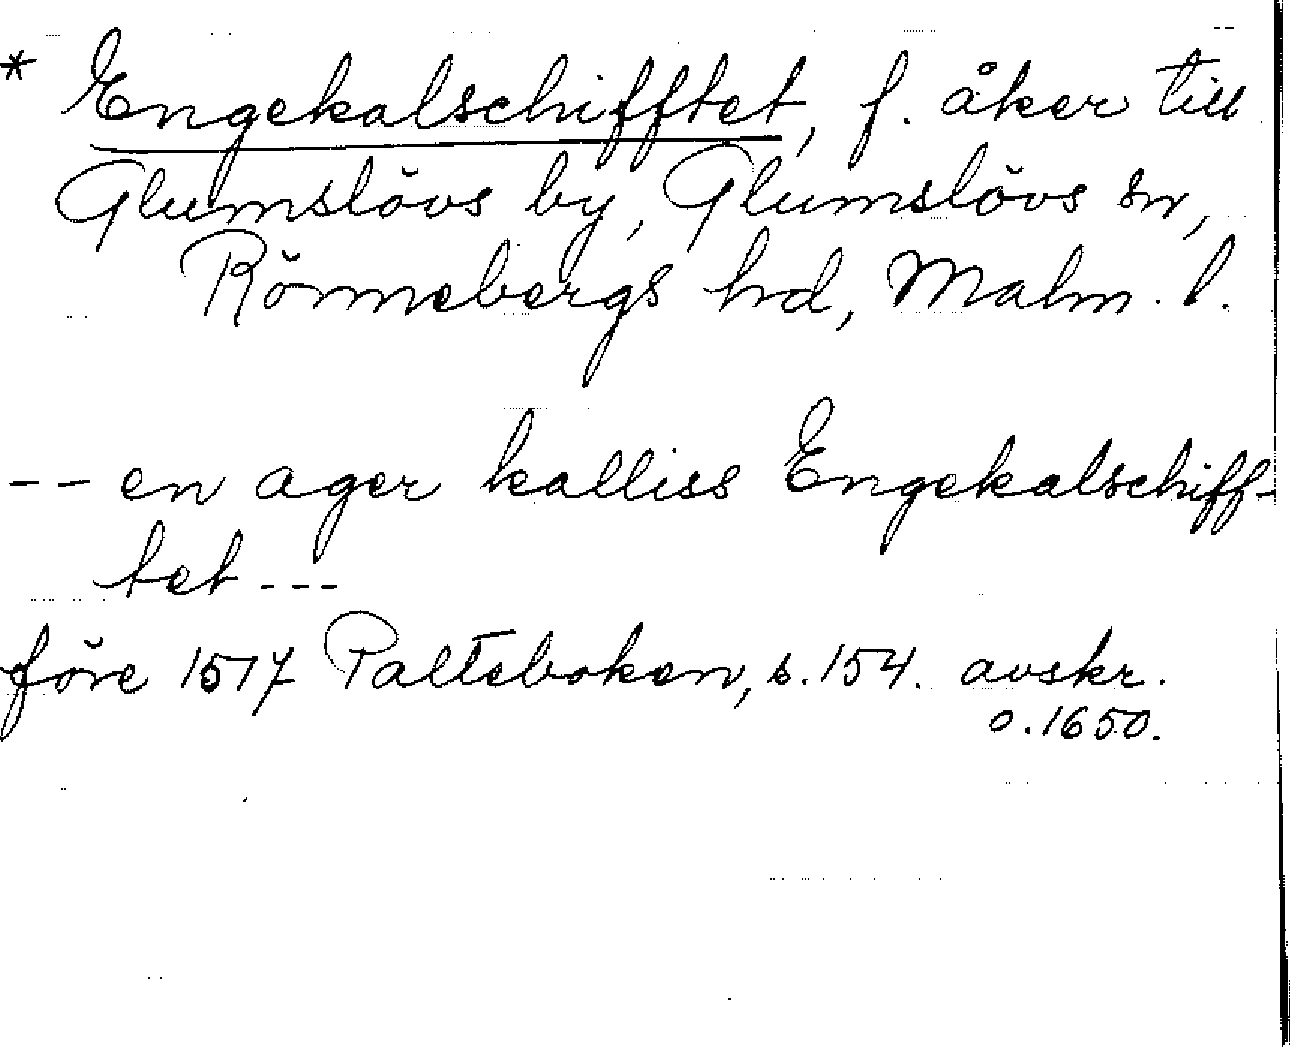 * Engekalschifftet, f. åker till
Glumslövs by, Glumslövs sn,
Rönnebergs hd, Malm. l.
-- en ager kalliss Engekalschiff-
tet ---
före 1517 Palteboken, s. 154. avskr.
o. 1650.